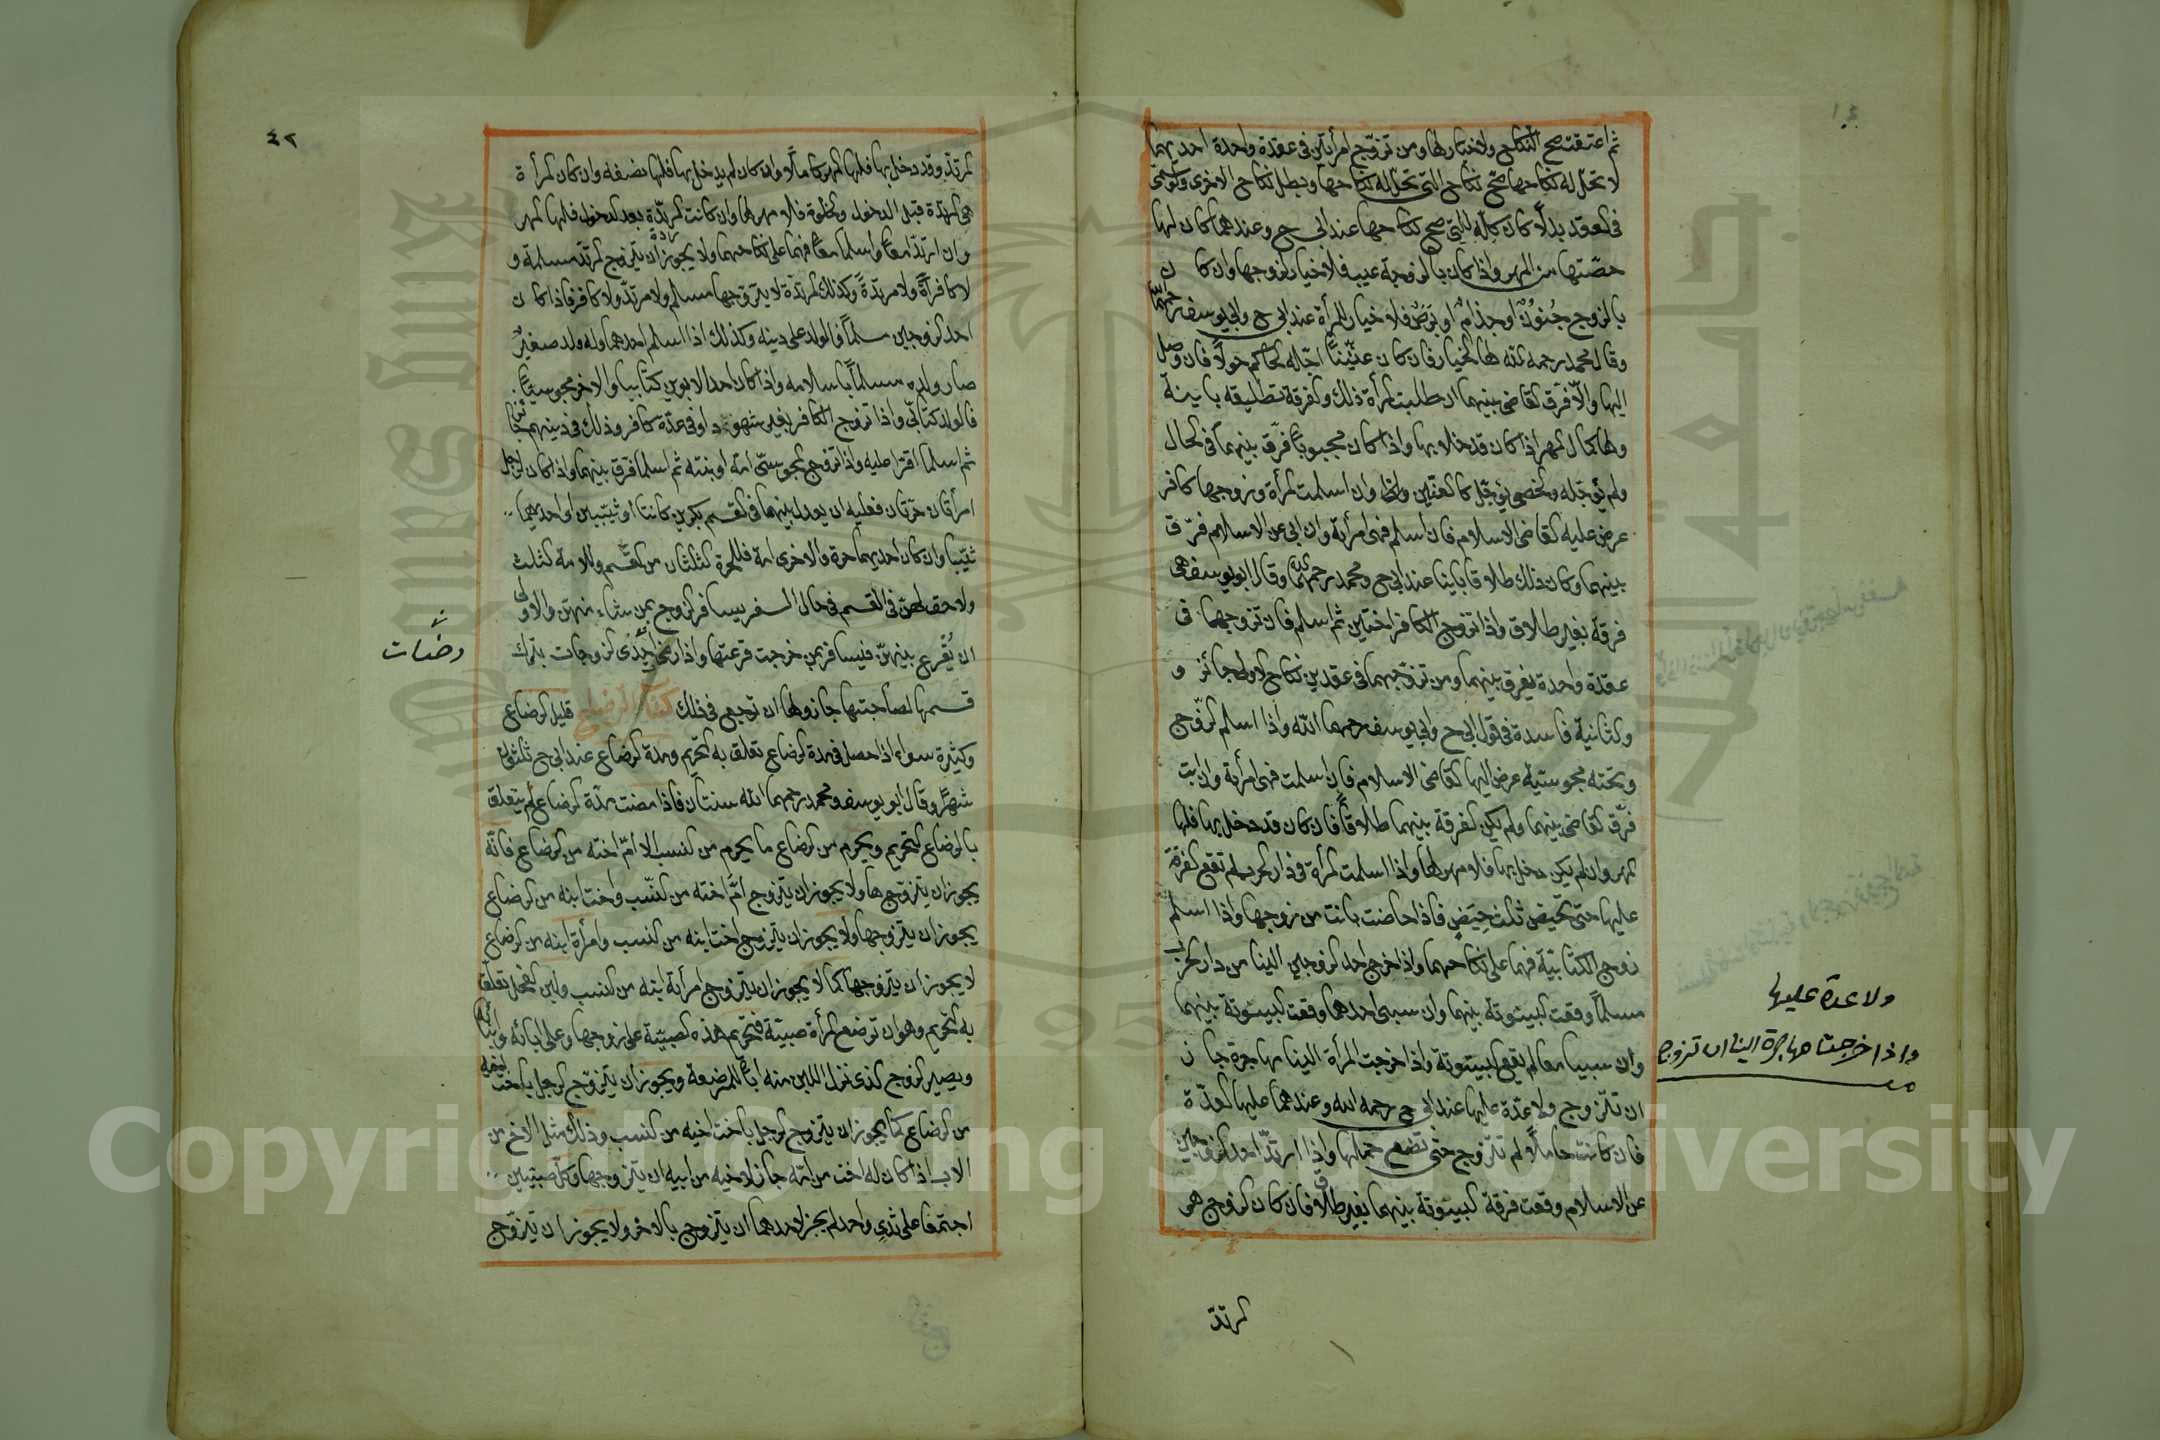 ثم اعتقت صح النكاح ولا خيار لها ومن تزوّج امرأتين فى عقدة واحدة احديهما
لا تحلّ له نكاحها صحّ نكاح التى تحلّ له نكاحها وبطل نكاح الاخرى
فى العقد بدلا كان كله للتى صح نكاحها عند ابى ح وعندهما كان لها
حصّتها من المهر واذا كان بالزوجة عيب فلا خيار لزوجها وان كان
بالزوج جُنُونٌ او جذامٌ او بَرَصٌ فلا خيار للمرأة عند ابى ح وابى يوسف رحمهما
وقال محمد رحمه الله لها الخيار فان كان عنّينًا اجّله الحاكم حولًا فان وصل
اليها والّا فرّق القاضى بينهما ان طلبت المرأة ذلك والفرقة تطليقه باينة
ولها كمال المهر اذا كان قد خلا بها واذا كان مجبوبًا فرّق بينهما فى الحال
ولم يؤجّله والخصى يؤجّل كالعنّين وان اسلمت المرأة وزوجها كافر
عرض عليه القاضى الاسلام فان اسلم فهى امرأته وان ابى عن الاسلام فرّق
بينهما وكان ذلك طلاقا باينا عند ابى ح ومحمد رحمهما الله وقال ابو يوسف هى
فرقة بغير طلاق واذا تزوج الكافر اختين ثم اسلم فان تزوجهما فى
عقدة واحدة يفرق بينهما ومن تزوّجهما فى عقدين نكاح الاولى جائز و
والثانية فاسدة فى قول ابى ح وابى يوسف رحمهما الله واذا اسلم الزوّج
وتحته مجوسيّة عرض اليها القاضى الاسلام فان اسلمت فهى امرأته وان ابت
فرّق القاضى بينهما ولم يكن الفرقة بينهما طلاقًا فان كان قد دخل بها فلها
المهر وان لم يكن دخل بها فلا مهر لها واذا اسلمت المرأة فى دار الحرب لم تقع الفرقة
عليها حتى تحيض ثلث حِيَضٍ فاذا حاضت بانت من زوجها واذا اسلم
زوج الكتابيّة فهما على نكاحهما واذا خرج احد الزوجين الينا من دار الحرب
مسلمًا وقعت البينونة بينهما وان سبى احدهما وقعت البينونة بينهما
وان سبيا معا لم يقع البينونة واذا خرجت المرأة الينا مهاجرة جاز
ان تتزوج ولا عدّة عليها عند ابى ح رحمه الله وعندهما عليها العدّة
فان كانت حاملًا لم تتزوج حتى تضع حملها واذا ارتدّ احد الزوجين
عن الاسلام وقعت فرقة البينونة بينهما بغير طلاق فان كان الزوج هو
ولا عدة عليها
واذا خرجت مهاجرة الينا ان تزوج
المرتدّ
٤٢
المرتدّ وقد دخل بها فلها المهر كاملًا وان كان لم يدخل بها فلها نصفه وان كان المرأة
هى المرتدّة قبل الدخول والخلوة فلا مهر لها وان كانت المرتدّة بعد الدخول فلها المهر
وان ارتدّا معًا واسلما معًا فهما على نكاحهما ولا يجوز ان يتزوج المرتدّ مسلمة و
لا كافرةً ولا مرتدةً وكذلك المرتدّة لا يتزوجها مسلم ولا مرتدّ ولا كافر فاذا كان
احد الزوجين مسلمًا فالولد على دينه وكذلك اذا اسلم احدهما وله ولد صغيرٌ
صار ولده مسلمًا باسلامه واذا كان احد الابوين كتابيا والاخر مجوسيّا
فالولد كتابىّ واذا تزوج الكافر بغير شهود او فى عدّة كافر وذلك فى دينهم جائز
ثم اسلما اقرّا عليه واذا تزوج المجوسىّ امّه او بنته ثم اسلما فرق بينهما واذا كان لرجل
امرأتان حرّتان فعليه ان يعدل بينهما فى القسم بكرين كانتا او ثيّبين او احديهما
ثيّبا وان كان احديهما حرة والاخرى امة فللحرة الثلثان من القسم وللامة الثلث
ولا حق لهنّ فى القسم فى حال السفر يسافر الزوج بمن شاء منهنّ والاولى
ان يُقْرِع بينهنّ فيسافر بمن خرجت قرعتها واذا رضى احدى الزوجات بترك
رضيت
قسمها لصاحبتها جاز ولها ان ترجع فى ذلك كتاب الرضاع قليل الرضاع
وكثيره سواء اذا حصل فى مدة الرضاع تعلق به التحريم ومدة الرضاع عند ابى ح ثلثون
شهرًا وقال ابو يوسف ومحمد رحمهما الله سنتان فاذا مضت مدّة الرضاع لم يتعلق
بالرضاع التحريم ويحرم من الرضاع ما يحرم من النسب الا امّ اخته من الرضاع فانّه
يجوز ان يتزوّجها ولا يجوز ان يتزوج امّ اخته من النّسب واخت ابنه من الرضاع
يجوز ان يتزوجها ولا يجوز ان يتزوج اخت ابنه من النسب وامرأة ابنه من الرضاع
لا يجوز ان يتزوجها كما لا يجوز ان يتزوج امرأة ابنه من النسب ولبن الفحل يتعلّق
به التحريم وهو ان ترضع المرأة صبيّة فتحرم هذه الصبيّة على زوجها وعلى ابائه وابنائه
ويصير الزوج الذى نزل اللبن منه ابًا للمرضعة ويجوز ان يتزوّج الرجل باخت اخيه
من الرضاع كما يجوز ان يتزوج الرجل باخت اخيه من النسب وذلك مثل الاخ من
الاب اذا كان له اخت من امّه جاز لاخيه من ابيه ان يتزوجها وكلّ صبيّين
اجتمعا على ثدىٍ واحد لم يجز لاحدهما ان يتزوج بالاخر ولا يجوز ان يتزوّج
Copyright © King Saud University